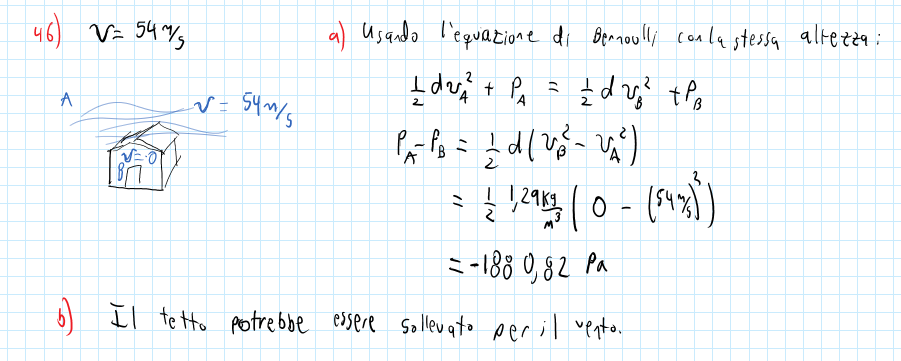 46) v = 54 m/s
a) Usando l'equazione di Bernoulli con la stessa altezza:
A
v = 54 m/s
v = 0
B
½ d v_A² + P_A = ½ d v_B² + P_B
P_A - P_B = ½ d ( v_B² - v_A² )
= ½ 1,29 kg/m³ ( 0 - (54 m/s)² )
= -1880,82 Pa
b) Il tetto potrebbe essere sollevato per il vento.